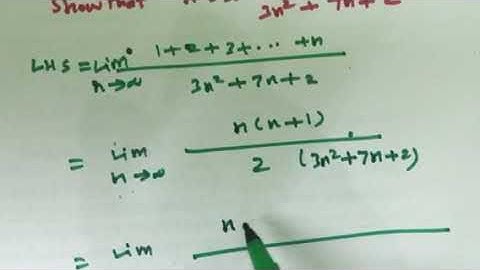 Show that
3n² + 7n + 2
LHS = Lim 1 + 2 + 3 + ... + n
n→∞ 3n² + 7n + 2
= Lim n(n+1)
n→∞ 2 (3n² + 7n + 2)
= Lim n